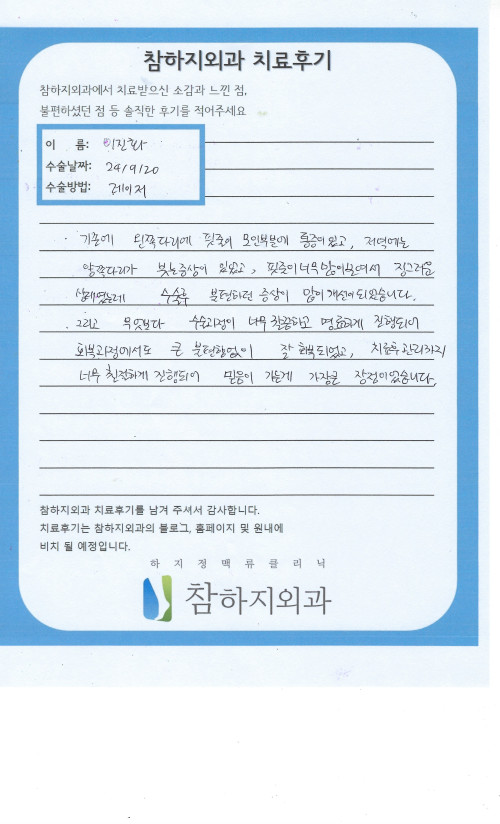 참하지외과 치료후기
참하지외과에서 치료받으신 소감과 느낀 점,
불편하셨던 점 등 솔직한 후기를 적어주세요
이 름:
수술날짜: 24/9/20
수술방법: 레이저
· 기존에 왼쪽다리에 핏줄이 모인부분에 통증이 있고, 저녁에는
양쪽다리가 붓는증상이 있었고, 핏줄이 너무많이 징그러운
상태였는데 수술후 불편하던 증상이 많이 개선이 되었습니다.
· 그리고 무엇보다 수술과정이 너무 꼼꼼하고 명료하게 진행되어
회복과정에서도 큰 불편함없이 잘 회복되었고, 치료후 관리까지
너무 친절하게 진행되어 믿음이 가는게 가장큰 장점이었습니다.
참하지외과 치료후기를 남겨 주셔서 감사합니다.
치료후기는 참하지외과의 블로그, 홈페이지 및 원내에
비치 될 예정입니다.
하지정맥류클리닉
참하지외과